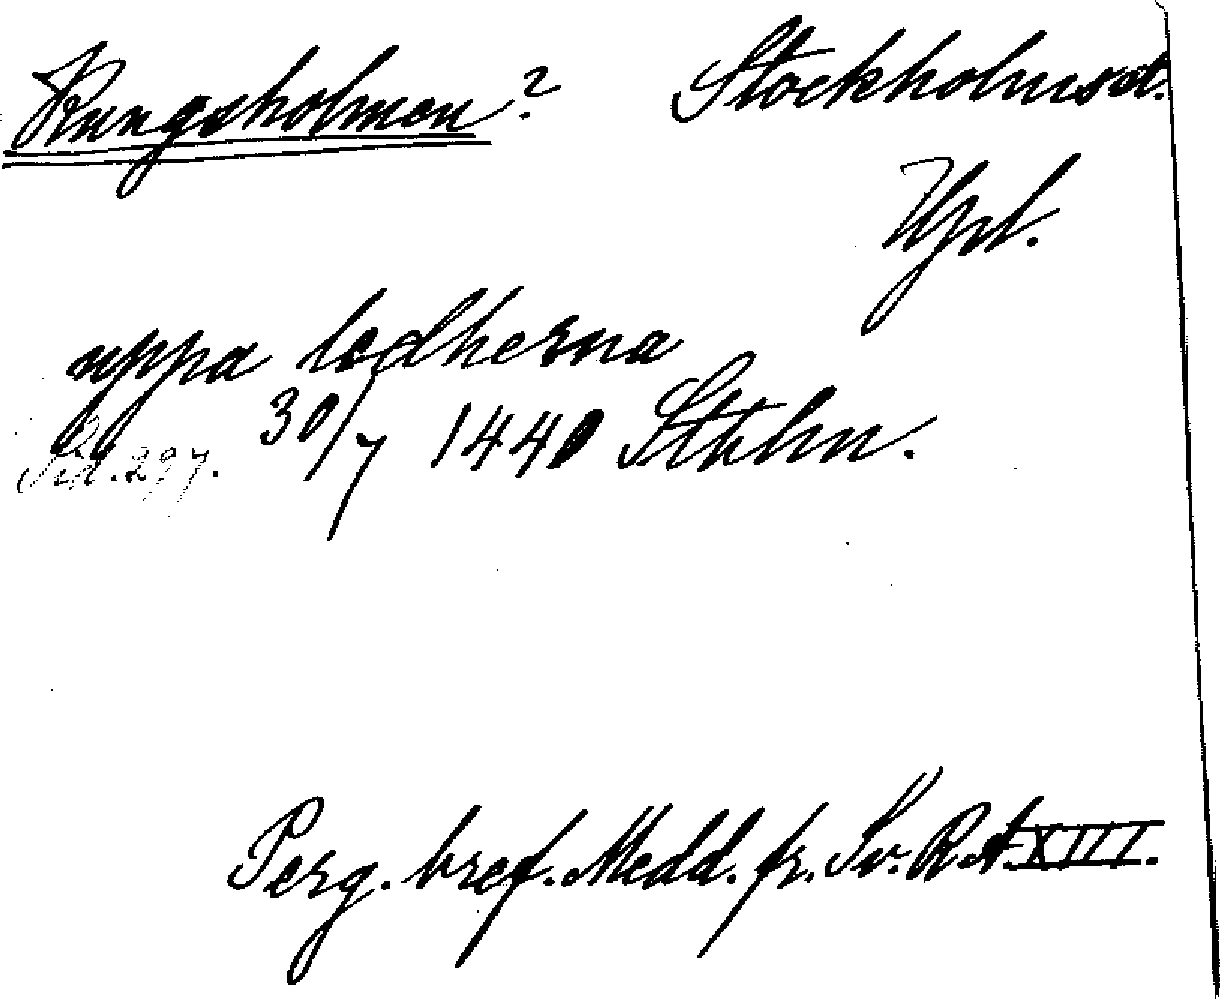 Kungsholmen? Stockholms st.
Upl.
uppa lodherna
30/7 1440 Stkhn.
Sid. 297.
Perg. bref. Medd. fr. Sv. R. A. XIII.